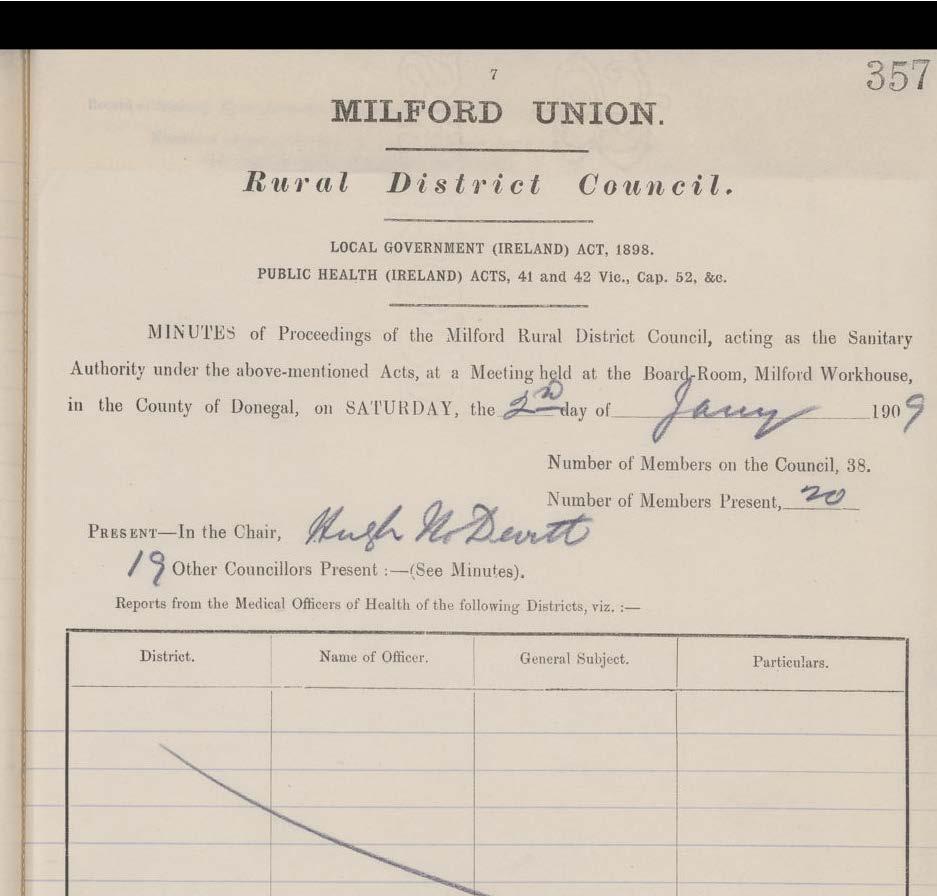 7
357
MILFORD UNION.
Rural District Council.
LOCAL GOVERNMENT (IRELAND) ACT, 1898.
PUBLIC HEALTH (IRELAND) ACTS, 41 and 42 Vic., Cap. 52, &c.
MINUTES of Proceedings of the Milford Rural District Council, acting as the Sanitary
Authority under the above-mentioned Acts, at a Meeting held at the Board-Room, Milford Workhouse,
in the County of Donegal, on SATURDAY, the 2nd day of Jany 1909
Number of Members on the Council, 38.
Number of Members Present, 20
PRESENT—In the Chair, Hugh McDevitt
19 Other Councillors Present :—(See Minutes).
Reports from the Medical Officers of Health of the following Districts, viz. :—
District. Name of Officer. General Subject. Particulars.